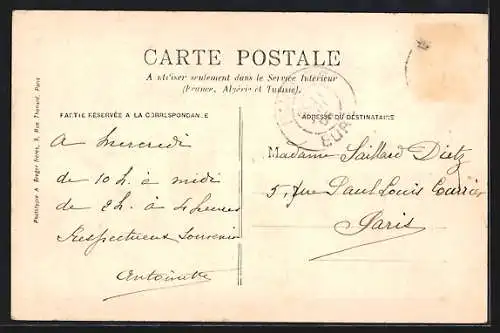 CARTE POSTALE
A utiliser seulement dans le Service Intérieur
(France, Algérie et Tunisie).
PARTIE RÉSERVÉE A LA CORRESPONDANCE
ADRESSE DU DESTINATAIRE
A Mercredi
de 10 h. à midi
de 2 h. à 4 heures
Respectueux Souvenir
Antoinette
Madame Saillard Dietz
5, rue Paul Louis Courrier
Paris
Phototypie A. Berger frères, 9, Rue Thénard, Paris
EUR